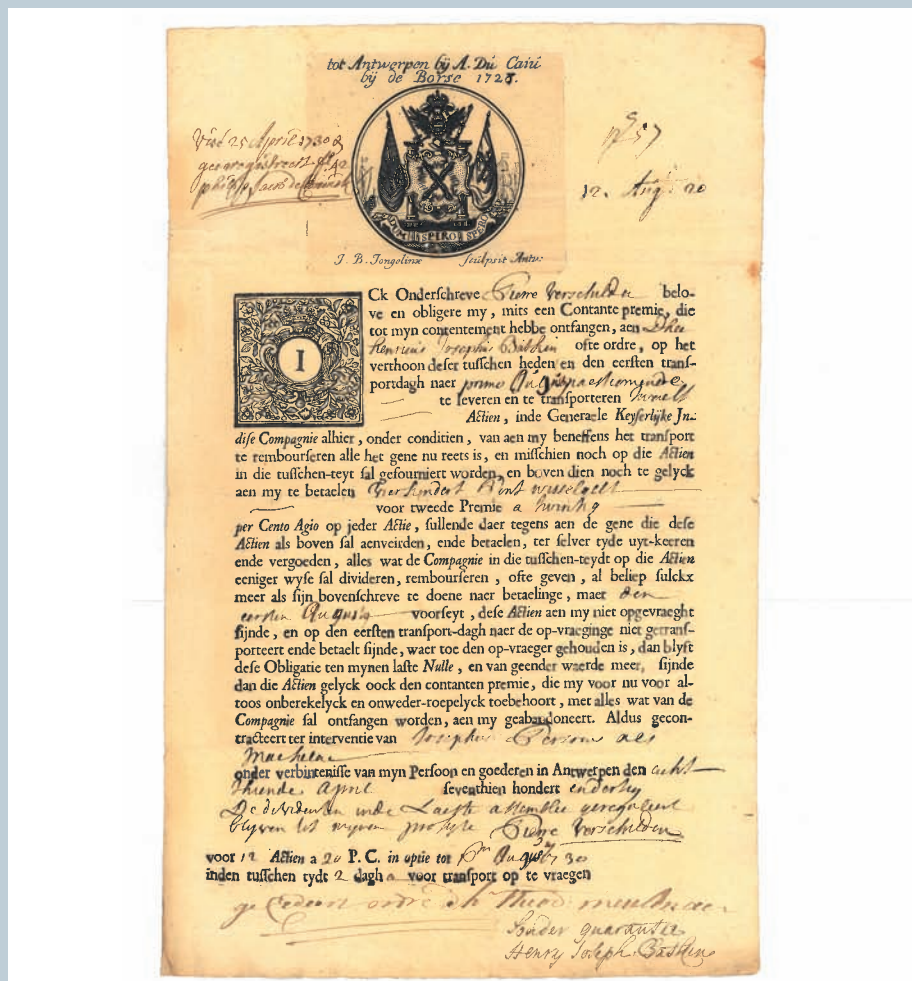 tot Antwerpen bij A. Du Caiu
bij de Borse 1728.
Visé 25 April 1730
No 57
12. Augt 20
DUM SPIRO SPERO
J. B. Jongelinx sculpsit Antw:
I
Ck Onderschreve Pierre Verschilden belo-
ve en obligere my, mits een Contante premie, die
tot myn contentement hebbe ontfangen, aen Dheer
Henricus Josephus ofte ordre, op het
verthoon deser tusschen heden en den eersten trans-
portdagh naer primo Augusti naestkomende
te leveren en te transporteren twaelf
Actien, inde Generaele Keyserlijke In-
dise Compagnie alhier, onder conditien, van aen my beneffens het transport
te rembourseren alle het gene nu reets is, en misschien noch op die Actien
in die tusschen-teyt sal gefourniert worden, en boven dien noch te gelyck
aen my te betaelen vierhondert wisselgelt
voor tweede Premie a twintig
per Cento Agio op jeder Actie, sullende daer tegens aen de gene die dese
Actien als boven sal aenveirden, ende betaelen, ter selver tyde uyt-keeren
ende vergoeden, alles wat de Compagnie in die tusschen-teydt op die Actien
eeniger wyse sal divideren, rembourseren, ofte geven, al beliep sulckx
meer als sijn bovenschreve te doene naer betaelinge, maer den
eersten Augusti voorseyt, dese Actien aen my niet opgevraeght
sijnde, en op den eersten transport-dagh naer de op-vraeginge niet getrans-
porteert ende betaelt sijnde, waer toe den op-vraeger gehouden is, dan blyft
dese Obligatie ten mynen laste Nulle, en van geender waerde meer, sijnde
dan die Actien gelyck oock den contanten premie, die my voor nu voor al-
toos onberekelyck en onweder-roepelyck toebehoort, met alles wat van de
Compagnie sal ontfangen worden, aen my geabandoneert. Aldus gecon-
tracteert ter interventie van Josephus als
Mackelaer
onder verbintenisse van myn Persoon en goederen in Antwerpen den acht
thiende April seventhien hondert en dertig
De dividenden inde Laeste assemblee geresolveert
blyven tot mynen profyte Pierre Verschilden
voor 12 Actien a 20 P.C. in optie tot Pmo Augusti 1730
inden tusschen tydt 2 dagh a voor transport op te vraegen
Sonder guarantie
Henry Joseph